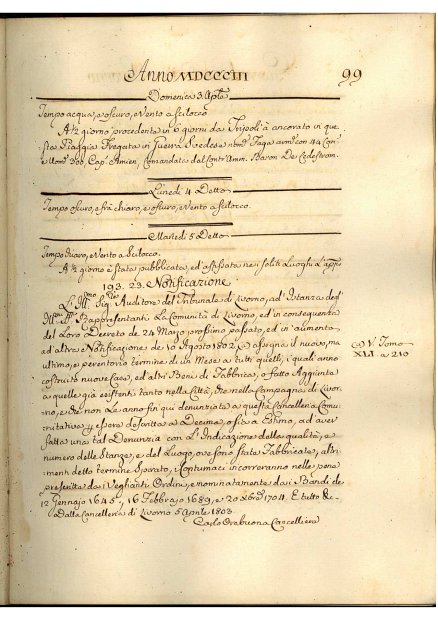 Anno MDCCCIII 99
Domenica 3 Aprile
Tempo acqua, e oscuro, e Vento a Scilocco
A ½ giorno procedente in 6 giorni da Tripoli è ancorato in que-
sta Spiaggia Fregata in Guerra Svedese con 44 Can
e Uom. 300 Cap. Comandata dal Contr'Amm. Baron De Cedestrom.
Lunedì 4 Detto
Tempo oscuro, e frà chiaro, e oscuro, e Vento a Scilocco.
Martedì 5 Detto
Tempo chiaro, e Vento a Scilocco.
A ½ giorno è stata pubblicata, ed affissata nei soliti Luoghi L'app.
193. 29. Notificazione
L'Ill.mo Sig.re Auditore del Tribunale di Livorno, ad Istanza degl'
Ill.mi Rappresentanti La Comunità di Livorno, ed in conseguenza
del Loro Decreto de 24 Marzo prossimo passato, ed in aumento
ad altra Notificazione de 10 Agosto 1802, assegna il nuovo, ma
ultimo, e perentorio termine di un Mese a tutti quelli, i quali anno
costruito nuove Case, ed altri Beni di Fabbrica, o fatto Aggiunta
a quelle già esistenti tanto nella Città, che nella Campagna di Livor-
no, e che non Le anno fin qui denunziate a questa Cancelleria Comu-
nitativa per essere descritte a Decima, o sia a Estimo, ad aver
fatta una tal Denunzia con L'Indicazione della qualità, e
numero delle Stanze, e del Luogo, ove sono state Fabbricate, altri-
menti detto termine spirato, i Contumaci incorreranno nelle pene
prescritte dai Veglianti Ordini, e nominatamente dai Bandi de
12 Gennajo 1645, 16 Febbrajo 1689, e 20 xbre 1704. E tutto &c.
Dalla Cancelleria di Livorno 5 Aprile 1803.
Carlo Orabuona Cancelliere
V. Tomo
XLI. a 210